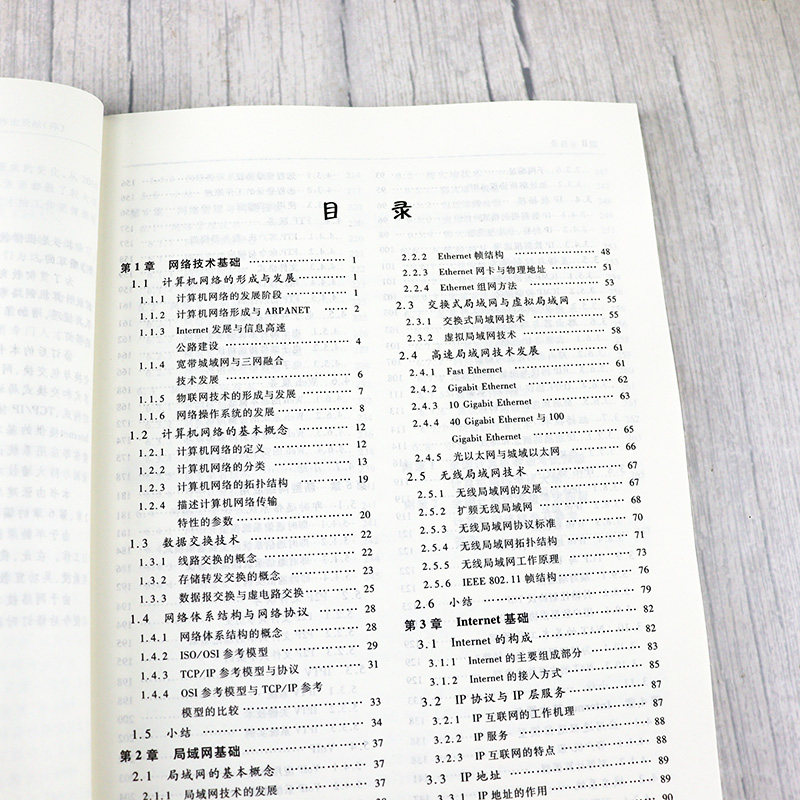 目 录
第1章 网络技术基础 …… 1
1.1 计算机网络的形成与发展 …… 1
1.1.1 计算机网络的发展阶段 …… 1
1.1.2 计算机网络形成与 ARPANET …… 2
1.1.3 Internet 发展与信息高速
公路建设 …… 4
1.1.4 宽带城域网与三网融合
技术发展 …… 6
1.1.5 物联网技术的形成与发展 …… 7
1.1.6 网络操作系统的发展 …… 8
1.2 计算机网络的基本概念 …… 12
1.2.1 计算机网络的定义 …… 12
1.2.2 计算机网络的分类 …… 13
1.2.3 计算机网络的拓扑结构 …… 19
1.2.4 描述计算机网络传输
特性的参数 …… 20
1.3 数据交换技术 …… 22
1.3.1 线路交换的概念 …… 22
1.3.2 存储转发交换的概念 …… 23
1.3.3 数据报交换与虚电路交换 …… 25
1.4 网络体系结构与网络协议 …… 28
1.4.1 网络体系结构的概念 …… 28
1.4.2 ISO/OSI 参考模型 …… 29
1.4.3 TCP/IP 参考模型与协议 …… 31
1.4.4 OSI 参考模型与 TCP/IP 参考
模型的比较 …… 33
1.5 小结 …… 34
第2章 局域网基础 …… 37
2.1 局域网的基本概念 …… 37
2.1.1 局域网技术的发展 …… 37
2.2.2 Ethernet 帧结构 …… 48
2.2.3 Ethernet 网卡与物理地址 …… 51
2.2.4 Ethernet 组网方法 …… 53
2.3 交换式局域网与虚拟局域网 …… 55
2.3.1 交换式局域网技术 …… 55
2.3.2 虚拟局域网技术 …… 58
2.4 高速局域网技术发展 …… 61
2.4.1 Fast Ethernet …… 61
2.4.2 Gigabit Ethernet …… 62
2.4.3 10 Gigabit Ethernet …… 63
2.4.4 40 Gigabit Ethernet 与 100
Gigabit Ethernet …… 65
2.4.5 光以太网与城域以太网 …… 66
2.5 无线局域网技术 …… 67
2.5.1 无线局域网的发展 …… 67
2.5.2 扩频无线局域网 …… 68
2.5.3 无线局域网协议标准 …… 70
2.5.4 无线局域网拓扑结构 …… 71
2.5.5 无线局域网工作原理 …… 73
2.5.6 IEEE 802.11 帧结构 …… 76
2.6 小结 …… 79
第3章 Internet 基础 …… 82
3.1 Internet 的构成 …… 82
3.1.1 Internet 的主要组成部分 …… 83
3.1.2 Internet 的接入方式 …… 85
3.2 IP 协议与 IP 层服务 …… 87
3.2.1 IP 互联网的工作机理 …… 87
3.2.2 IP 服务 …… 88
3.2.3 IP 互联网的特点 …… 88
3.3 IP 地址 …… 89
3.3.1 IP 地址的作用 …… 89
90